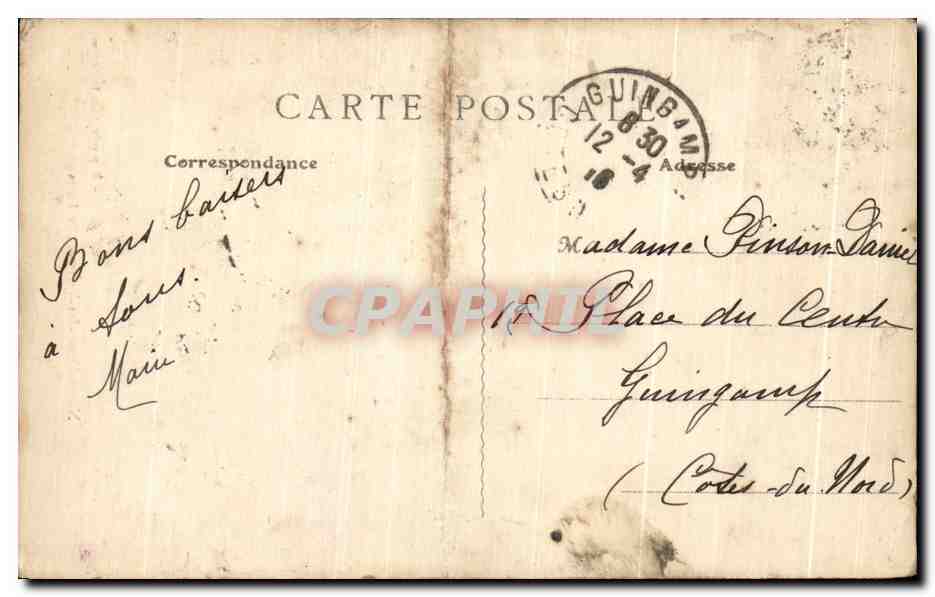 CARTE POSTALE
GUINGAMP
8 30
12 -4
Correspondance
Adresse
Bons baisers
à tous.
Marie
Madame Pinson-Daniel
18 Place du Centre
Guingamp
(Côtes-du-Nord)
CPAPHIL